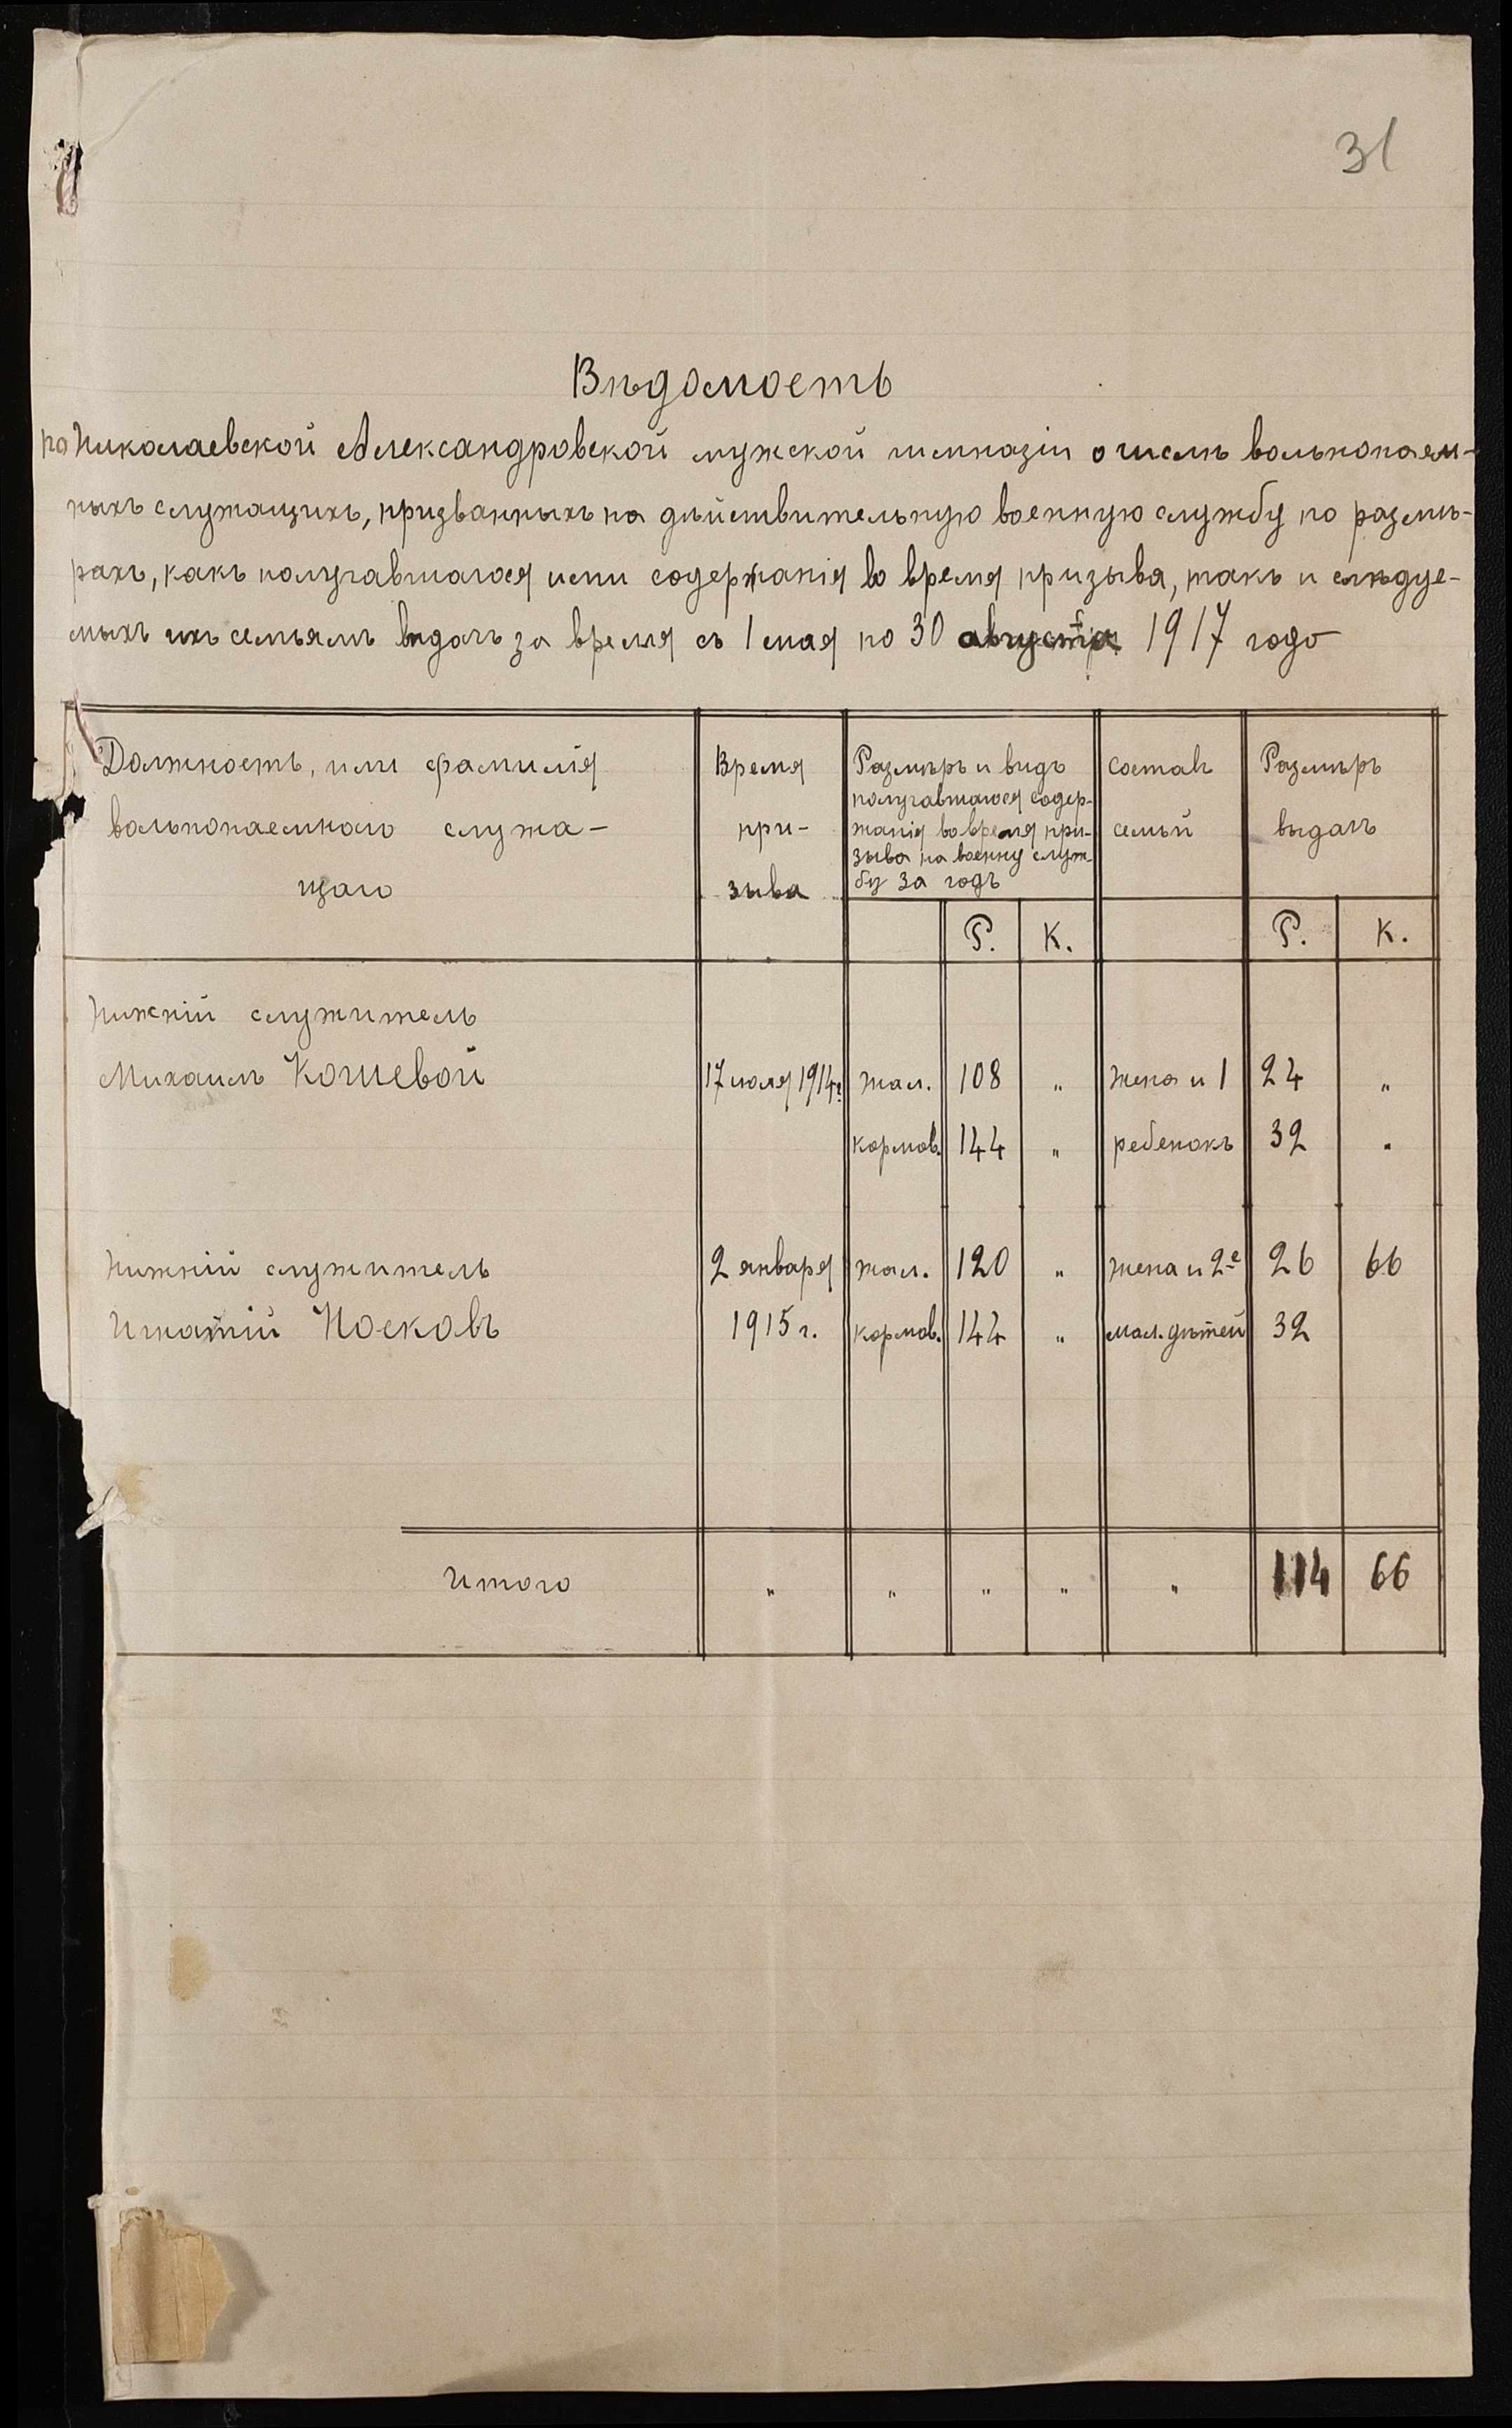 31
Вѣдомость
по Николаевской Александровской мужской гимназіи о числѣ вольнонаем-
ныхъ служащихъ, призванныхъ на дѣйствительную военную службу по размѣ-
рахъ, какъ получавшагося ими содержанія во время призыва, такъ и слѣдуе-
мыхъ ихъ семьямъ выдачъ за время съ 1 мая по 30 августа 1917 года
Должность, или фамилія
вольнонаемнаго служа-
щаго
Время
при-
зыва
Размѣръ и видъ
получавшагося содер-
жанія во время при-
зыва на военну служ-
бу за годъ
Р. К.
составъ
семьи
Размѣръ
выдачъ
Р. К.
Нижній служитель
Михаилъ Кошевой 17 июля 1914г. жал. 108 „ жена и 1 24 „
кормов. 144 „ ребенокъ 32 „
Нижній служитель 2 января жал. 120 „ жена и 2-е 26 66
Игнатій Носковъ 1915 г. кормов. 144 „ мал. дѣтей 32
Итого „ „ „ „ „ 114 66